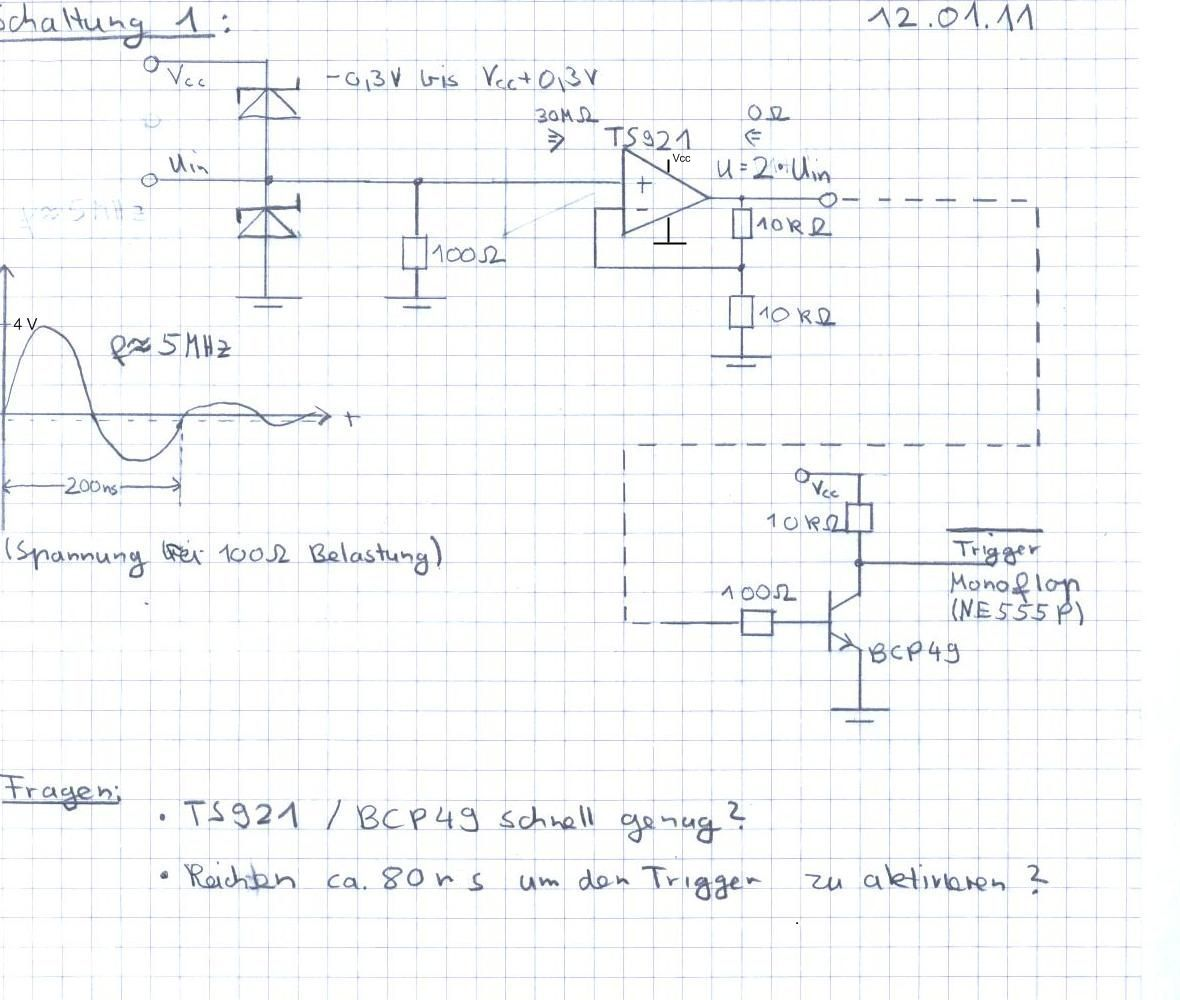 Schaltung 1:
12.01.11
Vcc
-0,3V bis Vcc+0,3V
30MΩ
0Ω
TS921
Vcc
Uin
U=2·Uin
+
-
f≈5MHz
10kΩ
100Ω
10kΩ
4 V
f≈5MHz
t
200ns
Vcc
10kΩ
(Spannung bei 100Ω Belastung)
Trigger
Monoflop
(NE555P)
100Ω
BCP49
Fragen:
• TS921 / BCP49 schnell genug?
• Reichen ca. 80ns um den Trigger zu aktivieren?